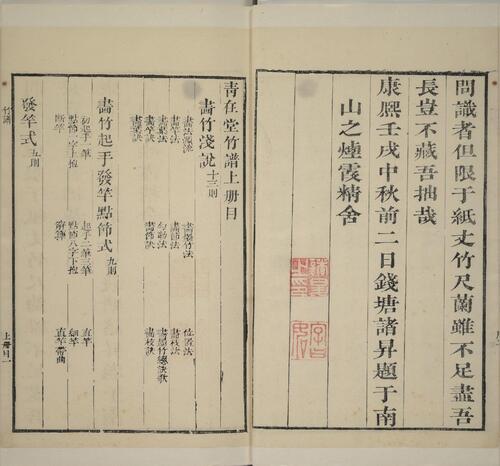 問識者但限于紙丈竹尺蘭雖不足盡吾
長豈不藏吾拙哉
康熙壬戌中秋前二日錢塘諸昇題于南
山之煙霞精舍
青在堂竹譜上册目
畫竹淺說十三則
畫法源流
畫墨竹法
位置法
畫竿法
畫節法
畫枝法
畫葉法
勾勒法
畫墨竹總歌訣
畫竿訣
畫節訣
畫枝訣
畫葉訣
畫竹起手發竿點節式九則
初起手一筆
起手二筆三筆
直竿
點節乙字上抱
點節八字下抱
細竿
斷竿
直竿帶曲
發竿式五則
竹譜
上册目一